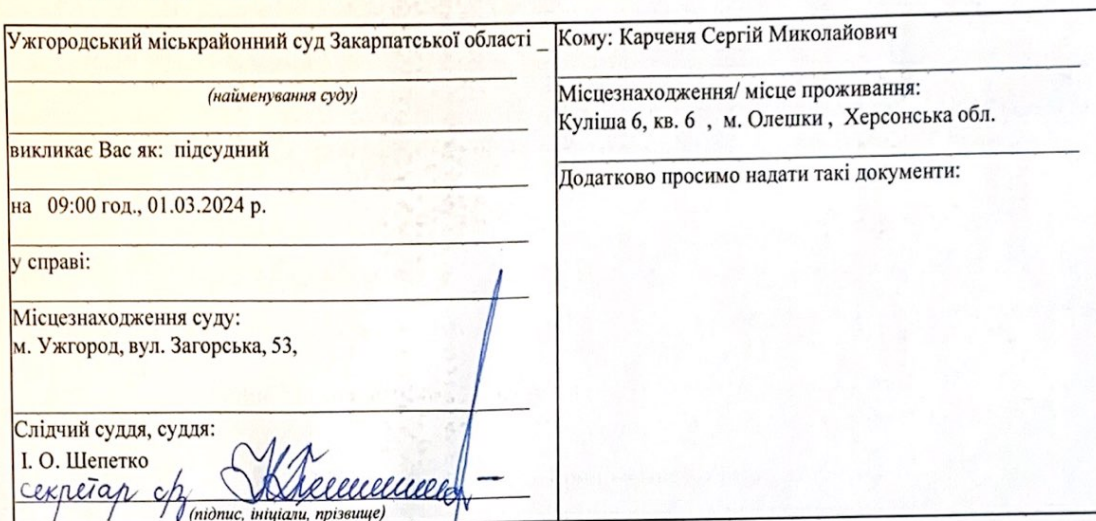 Ужгородський міськрайонний суд Закарпатської області _
(найменування суду)
викликає Вас як: підсудний
на 09:00 год., 01.03.2024 р.
у справі:
Місцезнаходження суду:
м. Ужгород, вул. Загорська, 53,
Слідчий суддя, суддя:
І. О. Шепетко
секретар с/з
(підпис, ініціали, прізвище)
Кому: Карченя Сергій Миколайович
Місцезнаходження/ місце проживання:
Куліша 6, кв. 6 , м. Олешки , Херсонська обл.
Додатково просимо надати такі документи: